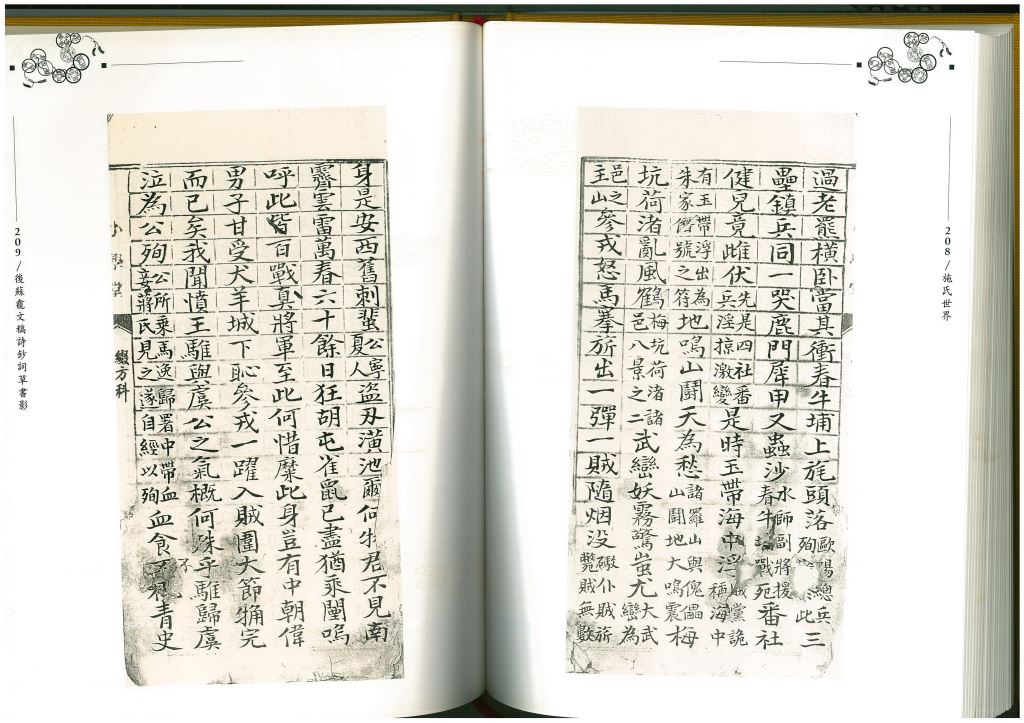 208/施氏世界
過老羆橫臥當其衝春牛埔上旄頭落歐陽總兵殉此三
壘鎮兵同一哭鹿門犀甲又蟲沙水師副將援春牛埔戰死番社
健兒竟雌伏先是四社番兵淫掠激變是時玉帶海中浮賊黨詭稱海中
有玉帶浮出為朱家僭號之符地鳴山鬪天為愁諸羅山與傀儡山鬪地大鳴震梅
坑荷渚亂風鶴梅坑荷渚諸邑八景之二武巒妖霧驚蚩尤大武巒為
邑之主山參戎怒馬搴旂出一彈一賊隨烟没礮仆賊旂斃賊無數
身是安西舊刺蜚公寧夏人盜刄潢池爾何物君不見南
霽雲雷萬春六十餘日狂胡屯雀鼠已盡猶乘闉嗚
呼此皆百戰真將軍至此何惜糜此身豈有中朝偉
男子甘受犬羊城下恥參戎一躍入賊圍大節完
而已矣我聞憤王騅與虞公之氣概何殊乎騅歸虞
泣為公殉公所乘馬逸歸署中帶血妾蔣氏見之遂自經以殉血食青史
綴方科
209/後蘇龕文稿詩鈔詞草書影